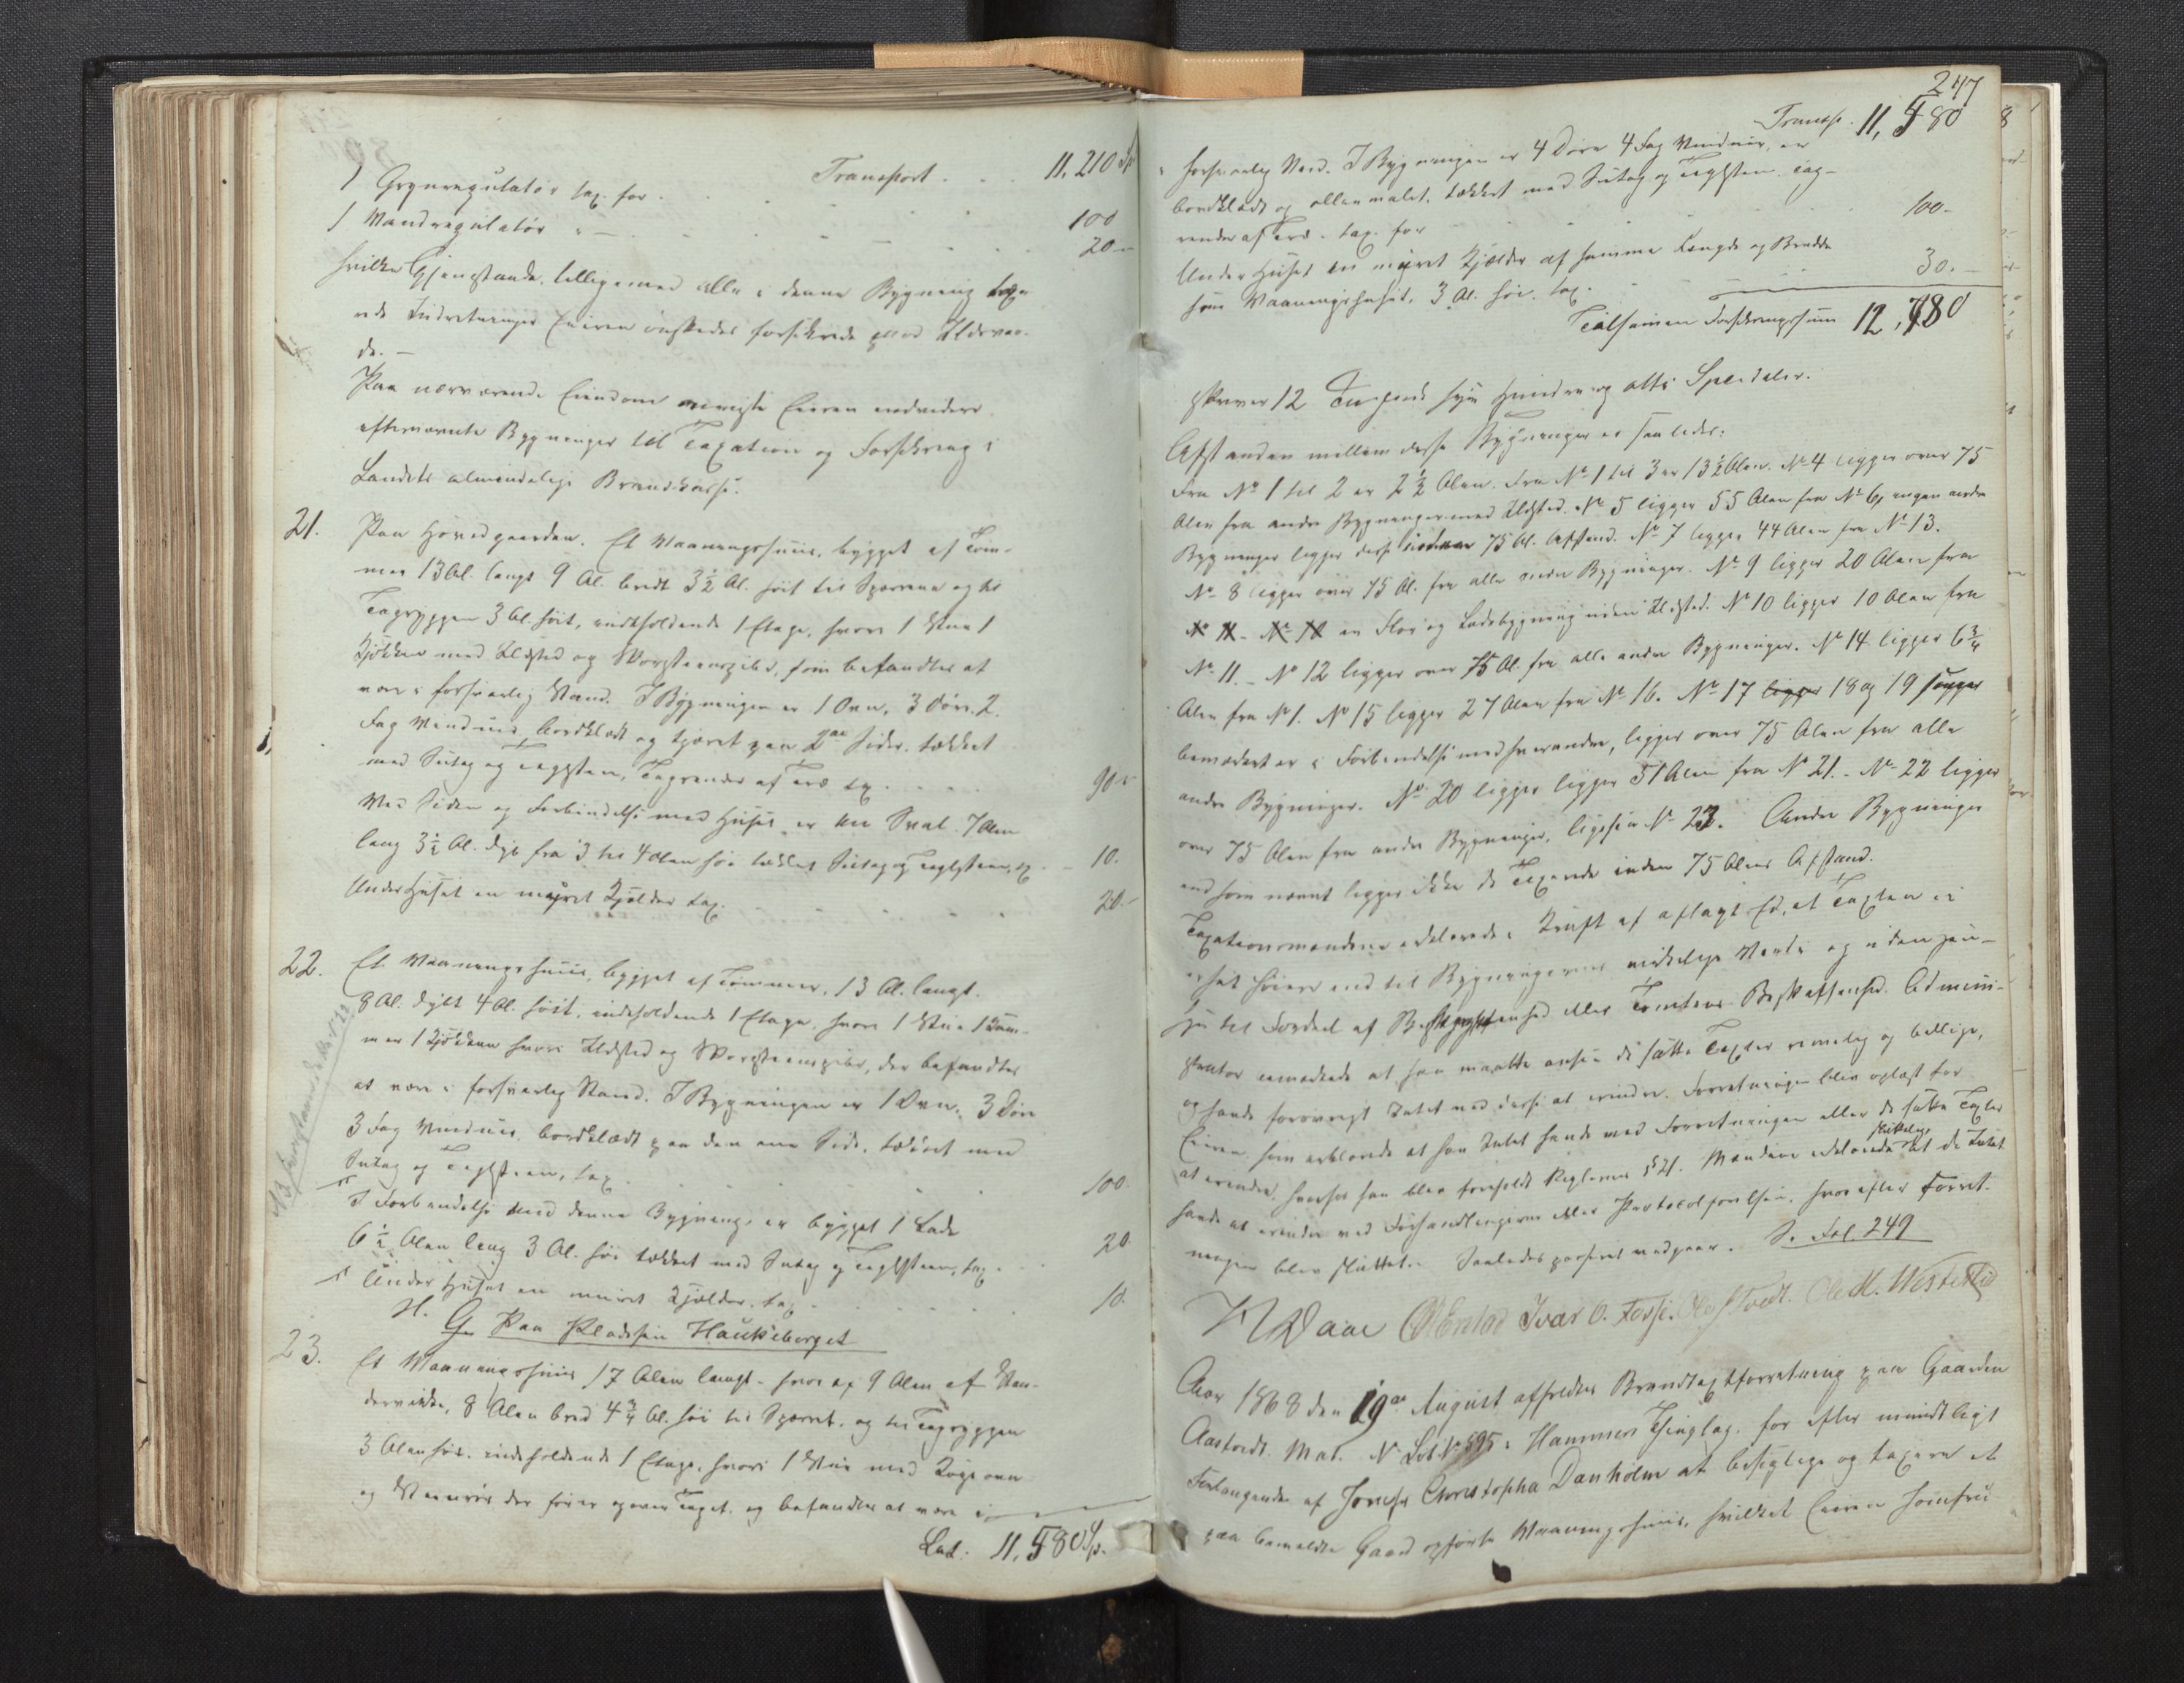 Transport . . . 11,210 Sp
1 Grynregulatør tax. for . . . . . 100
1 Vandregulatør " — . . . . . 20 —
hvilke Gjenstande, tilligemed alle i denne Bygning taxe-
rede Indretninger Eieren ønskedes forsikrede mod Ildsvaa-
de. —
Paa nærværende Eiendom opviiste Eieren endvidere
efternævnte Bygninger til Taxation og Forsikring i
Landets almindelige Brandkasse.
21. Paa Hovedgaarden. Et Vaaningshuus, bygget af Tøm-
mer 13 Al. langt 9 Al. bredt 3½ Al. høit til Sperrene og til
Tagryggen 3 Al. høit, indeholdende 1 Etage, hvori 1 Stue 1
Kjøkken med Ildsted og Skorsteenspibe, som befandtes at
være i forsvarlig Stand. I Bygningen er 1 Ovn, 3 Døre. 2
Fag Vinduer, bordklædt og tjæret paa 2de Sider. tækket
med Sutag og Taglsteen, Tagrender af Træ tx. . . . . 90 "
Ved Siden og Forbindelse med Huset er en Sval. 7 Alen
lang 3½ Al. dyb fra 3 til 4 Alen høi tækket Sutag og Taglsteen, tx. — 10.
Under Huset en muret Kjelder tax. . . . . 20. —
22. Et Vaaningshuus, bygget af Tømmer. 13 Al. langt.
8 Al. dybt 4 Al. høit, indeholdende 1 Etage, hvori 1 Stue 1 Kam-
mer 1 Kjøkken hvori Ildsted og Skorsteenspibe, der befandtes
at være i forsvarlig Stand. I Bygningen er 1 Ovn. 3 Døre
3 Fag Vinduer, bordklædt paa den ene Side, tækket med
Sutag og Taglsteen, tax . . . . . 100.
I Forbindelse med denne Bygning er bygget 1 Lade
6½ Alen lang 3 Al. høi tækket med Sutag og Taglsteen, tax. . . 20.
Under Huset en muret Kjelder. tax. . . . . 10.
H.
G. Paa Pladsen Haukeberget
23. Et Vaaningshuus 17 Alen langt - hvoraf 9 Alen af Sten-
derverke, 8 Alen bred 4¾ Al. høi til Sperret. og til Tagryggen
3 Alen høi. indeholdende 1 Etage, hvori 1 Stue med Kogeovn
og Steenrør der fører op over Taget. og befandtes at være i
Lat. 11,580 Sp.
247
Transp. 11,580
forsvarlig Stand. I Bygningen er 4 Døre 4 Fag Vinduer, er
bordklædt og oliemalet. tækket med Sutag og Taglsteen. Tag-
render af Træ. tax. for . . . . . 100 -
Under Huset en muret Kjelder af samme Længde og Bredde
som Vaaningshuset, 3 Al. høi. tax. . . . . 30. —
Tilsammen Forsikringssum 12,780
skriver 12 Tusinde syv Hundrede og otti Speidaler.
Afstanden mellem disse Bygninger er saaledes:
Fra No 1 til 2 er 2½ Alen. Fra No 1 til 3 er 13½ Alen. No 4 ligger over 75
Alen fra andre Bygninger med Ildsted. No 5 ligger 55 Alen fra No 6, ingen andre
Bygninger ligger disse indenfor 75 Al. Afstand. No 7 ligger 44 Alen fra No 13.
No 8 ligger over 75 Al. fra alle andre Bygninger. No 9 ligger 20 Alen fra
No 11 - No 10 en Flor og Ladebygning uden Ildsted. No 10 ligger 10 Alen fra
No 11. - No 12 ligger over 75 Al. fra alle andre Bygninger. No 14 ligger 6¾
Alen fra No 1. No 15 ligger 27 Alen fra No 16. No 17 ligger 18 og 19
bemærket er i Forbindelse med hverandre, ligger over 75 Alen fra alle
andre Bygninger. No 20 ligger ligger 51 Alen fra No 21. - No 22 ligger
over 75 Alen fra andre Bygninger, ligesaa No 23. Andre Bygninger
end som nævnt ligger ikke de Taxerede inden 75 Alens Afstand.
Taxationsmændene erklærede i Kraft af aflagt Ed, at Taxten ei
er sat høiere end til Bygningernes virkelige Værdi og uden Hen-
syn til Fordeel af Beliggenhed eller Tomtens Beskaffenhed. Admini-
strator bemærkede at han maatte ansee de satte Taxter rimelig og billige,
og havde forøvrigt Intet ved disse at erindre. Forretningen blev oplæst for
Eieren som erklærede at han Intet havde ved Forretningen eller de satte Taxter
at erindre, hvorhos han blev foreholdt Reglernes § 21. Mændene erklærede at de Intet
havde at erindre ved Forhandlingerne eller Protocolførelsen, hvorefter Forret-
ningen blev sluttet. Saaledes passeret vedgaaer. S. Fol. 249
Daae Ivar O. Fosse. Ole M. Westerlid
Aar 1868 den 19de August afholdtes Brandtaxtforretning paa Gaarden
Aastvedt. Mat. N. Løb. No 595 i Hammers Thinglag. for efter mundtligt
Forlangende af Jomfru Christopha Danholm at besigtige og taxere et
paa bemeldte Gaard opførte Vaaningshuus, hvilket Eieren Jomfru